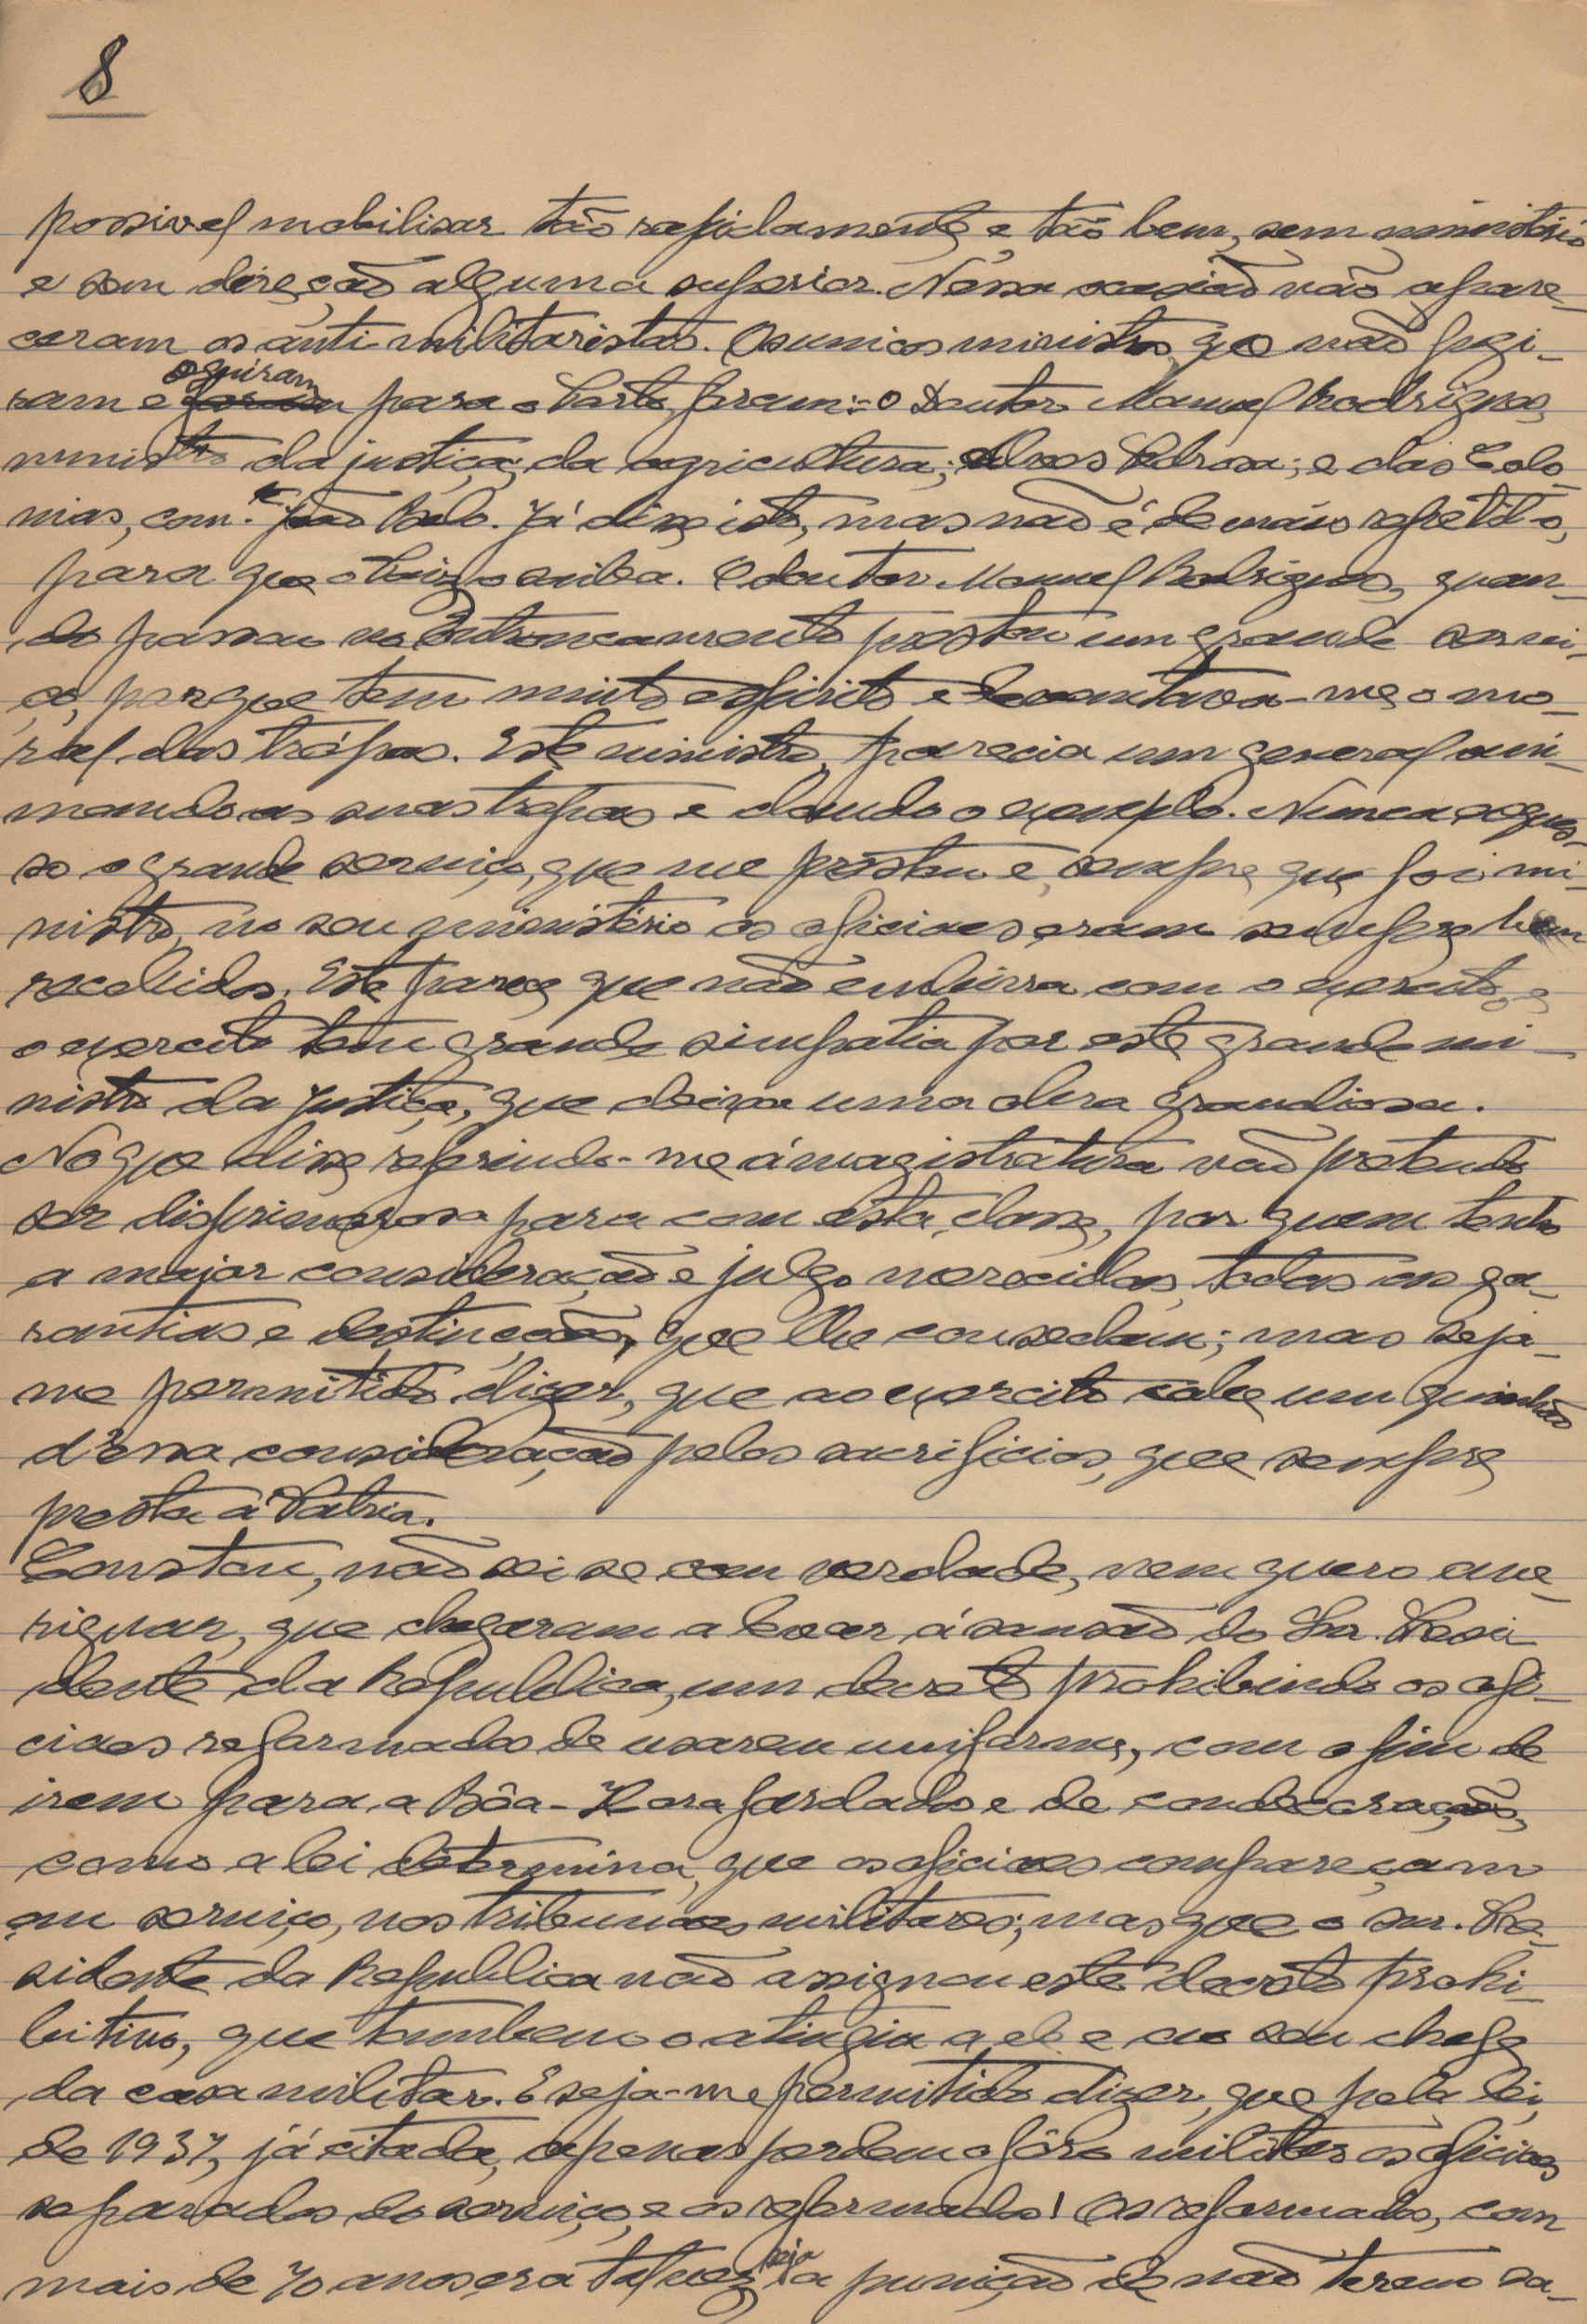 8
possivel mobilisar tão rapidamente e tão bem, sem ministério
e sem direcção alguma superior. Nessa ocasião não apare-
ceram os anti militaristas. Os unicos ministros que não fugi-
ram e seguiram para o Porto foram:- o Doutor Manuel Rodrigues,
ministro da justiça; da agricultura; Alves Pedrosa; e das Colo
nias, com.te João Belo. Já disse isto, mas não é de mais repetil-o,
para que o Paiz o saiba. O doutor Manuel Rodrigues, quan-
do passou no Entroncamento prestou um grande servi-
ço, porque tem muito espirito e levantava-me o mo-
ral das trópas. Este ministro, parecia um general ani-
mando as suas tropas e dando o exemplo. Nunca esque-
so o grande serviço, que me prestou e, sempre que foi mi-
nistro, no seu ministério os oficiaes eram sempre bem
recebidos. Este parece que não embirra com o exercito, e
o exercito tem grande simpatia por este grande mi-
nistro da justiça, que deixa uma obra grandiosa.
No que disse referindo-me á magistratura não pretendo
ser disprimorosa para com esta classe, por quem tenho
a maior consideração e julgo merecidas todas as ga-
rantias e destincções, que lhe consedem; mas seja-
me permitido dizer, que ao exercito cabe um quinhão
d'essa consideração pelos sacrificios, que sempre
presta á Patria.
Constou, não sei se com verdade, nem quero ave-
riguar, que chegaram a levar á sansão do Snr. Presi
dente da Republica, um decreto prohibindo os ofi-
ciaes reformados de usarem uniforme, com o fim de
irem para a Bôa-Hora fardados e de condecorações,
como a lei determina, que os oficiaes compareçam
em serviço, nos tribunaes militares; mas que o snr. Pre-
sidente da Republica não assignou este decreto prohi-
bitivo, que tambem o atingia a ele e ao seu chefe
da casa militar. E seja-me permitido dizer, que pela lei
de 1937, já citada, apenas perdem o fôro militar os oficiaes
separados do serviço, e os reformados! Os reformados, com
mais de 70 anos era talvez seja a punição de não terem sa-